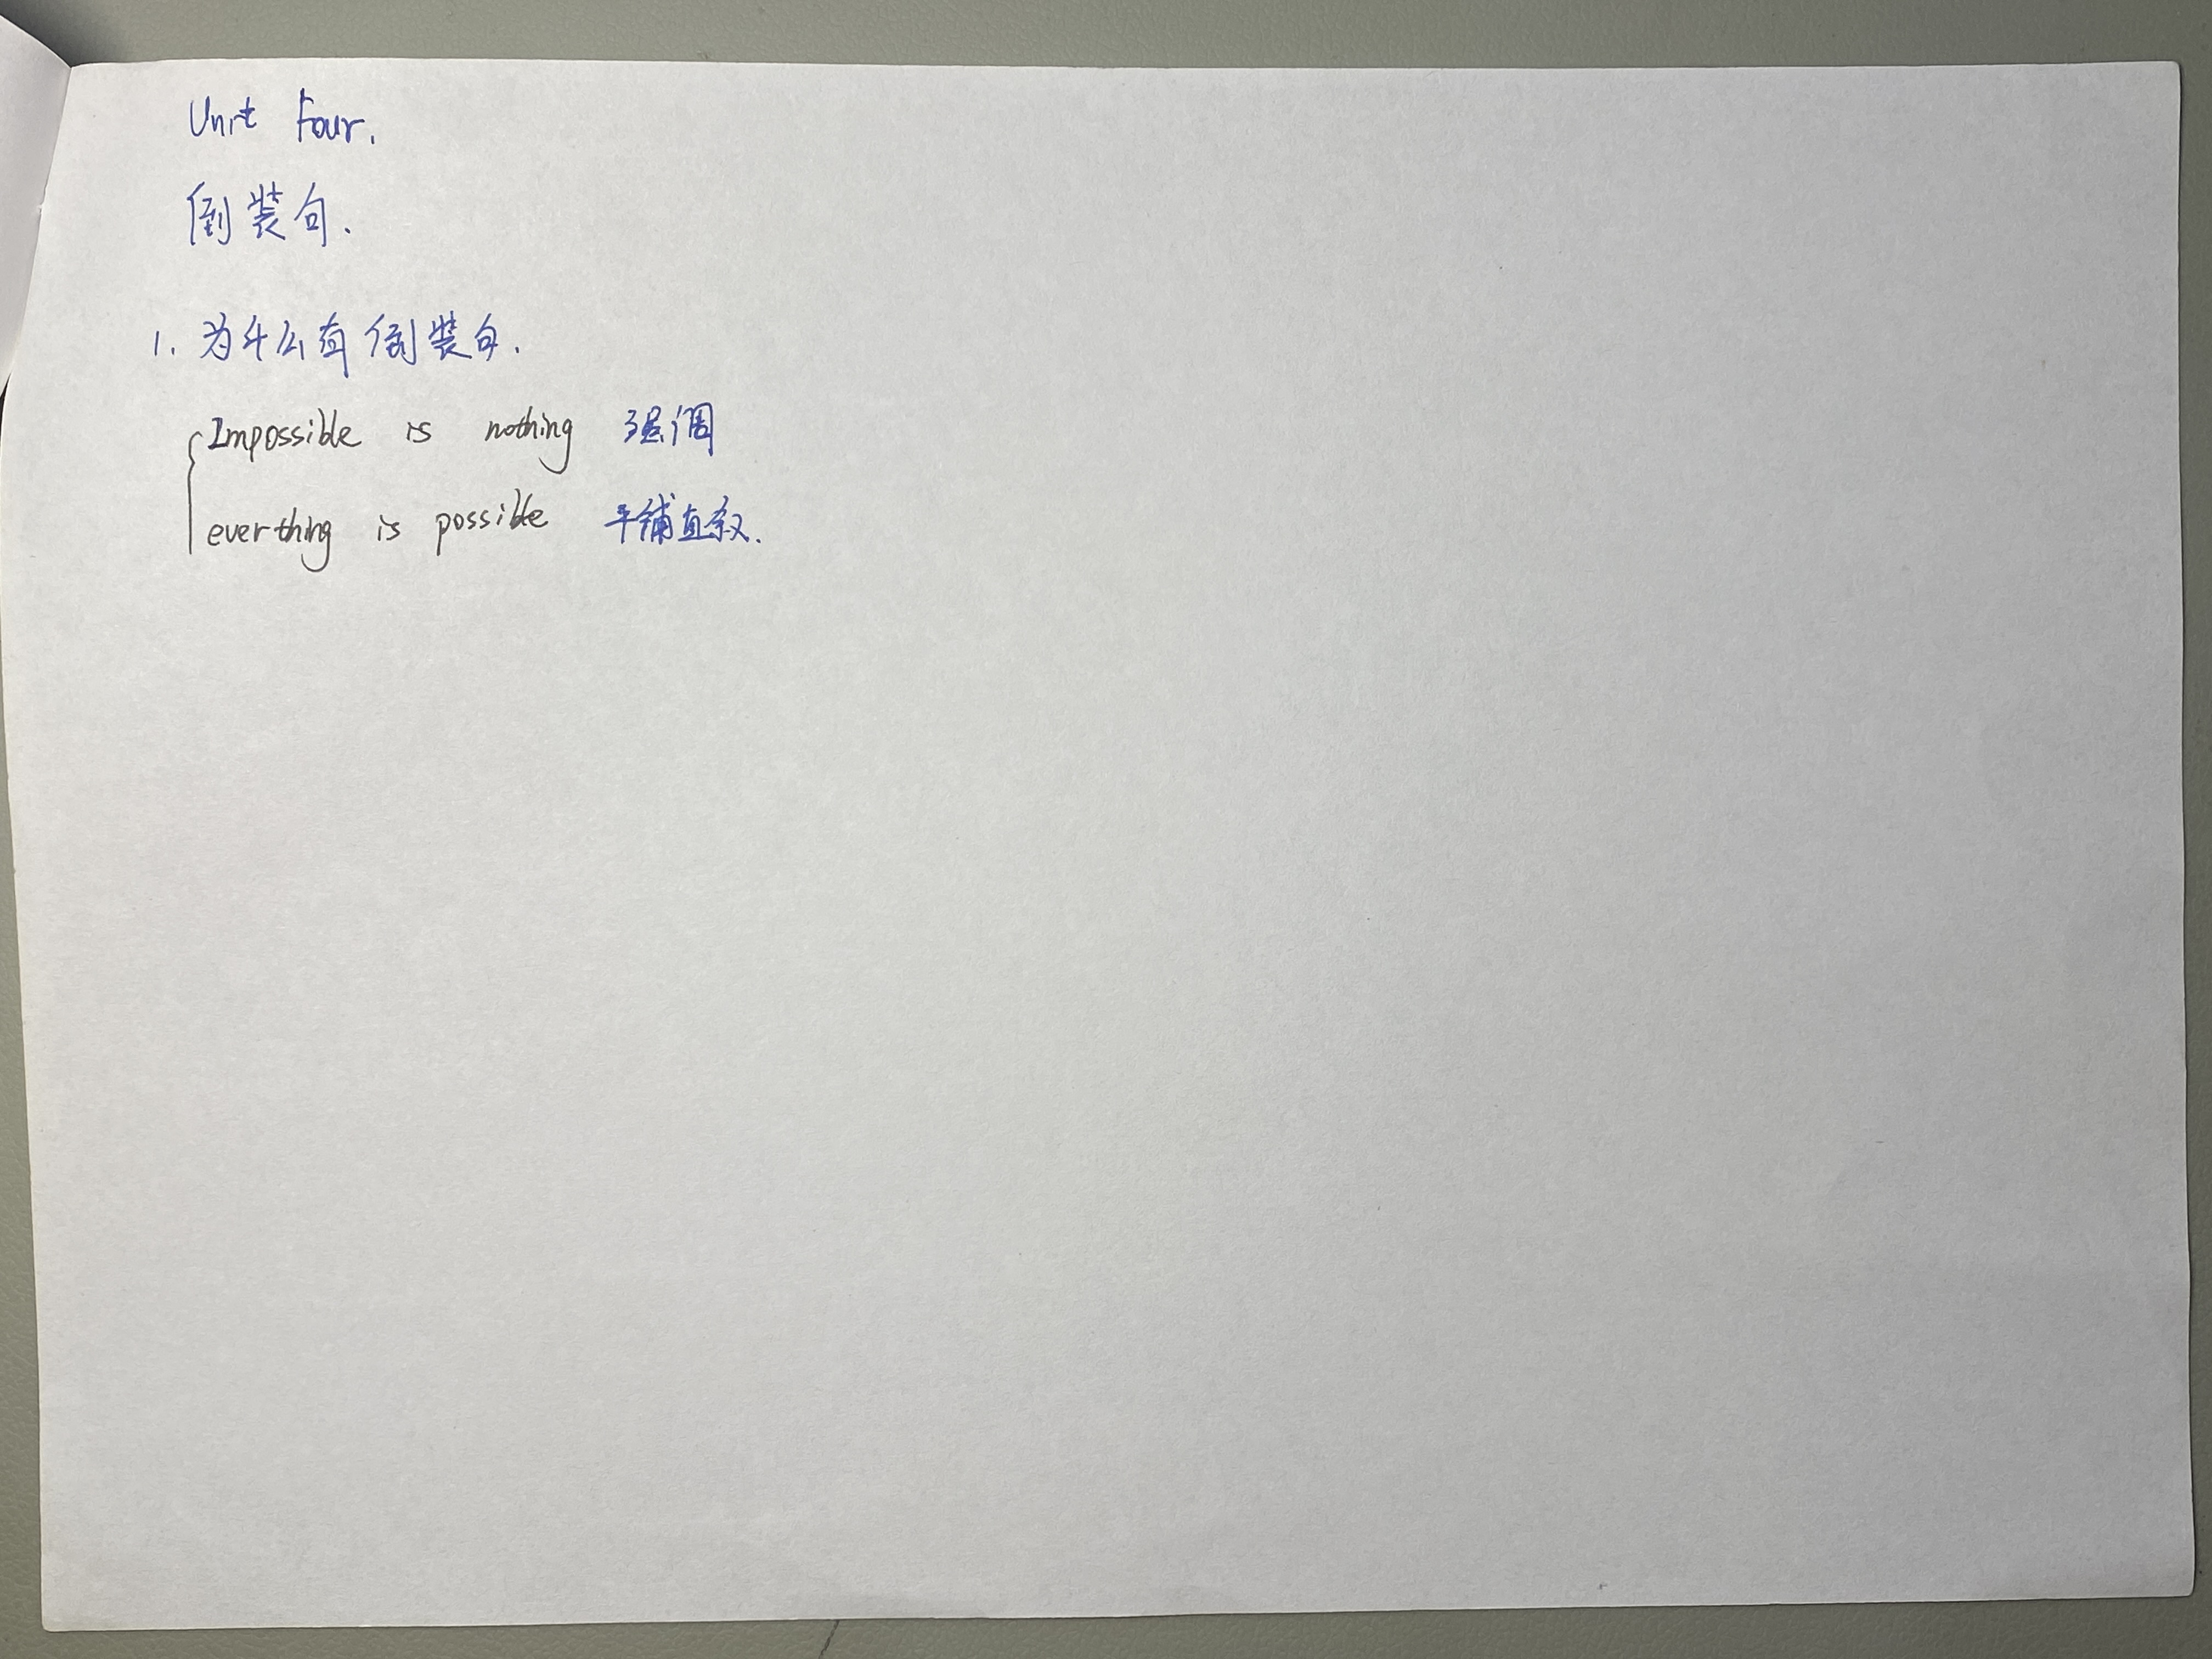 Unit Four.
倒装句.
1. 为什么有倒装句.
Impossible is nothing 强调
everthing is possible 平铺直叙.